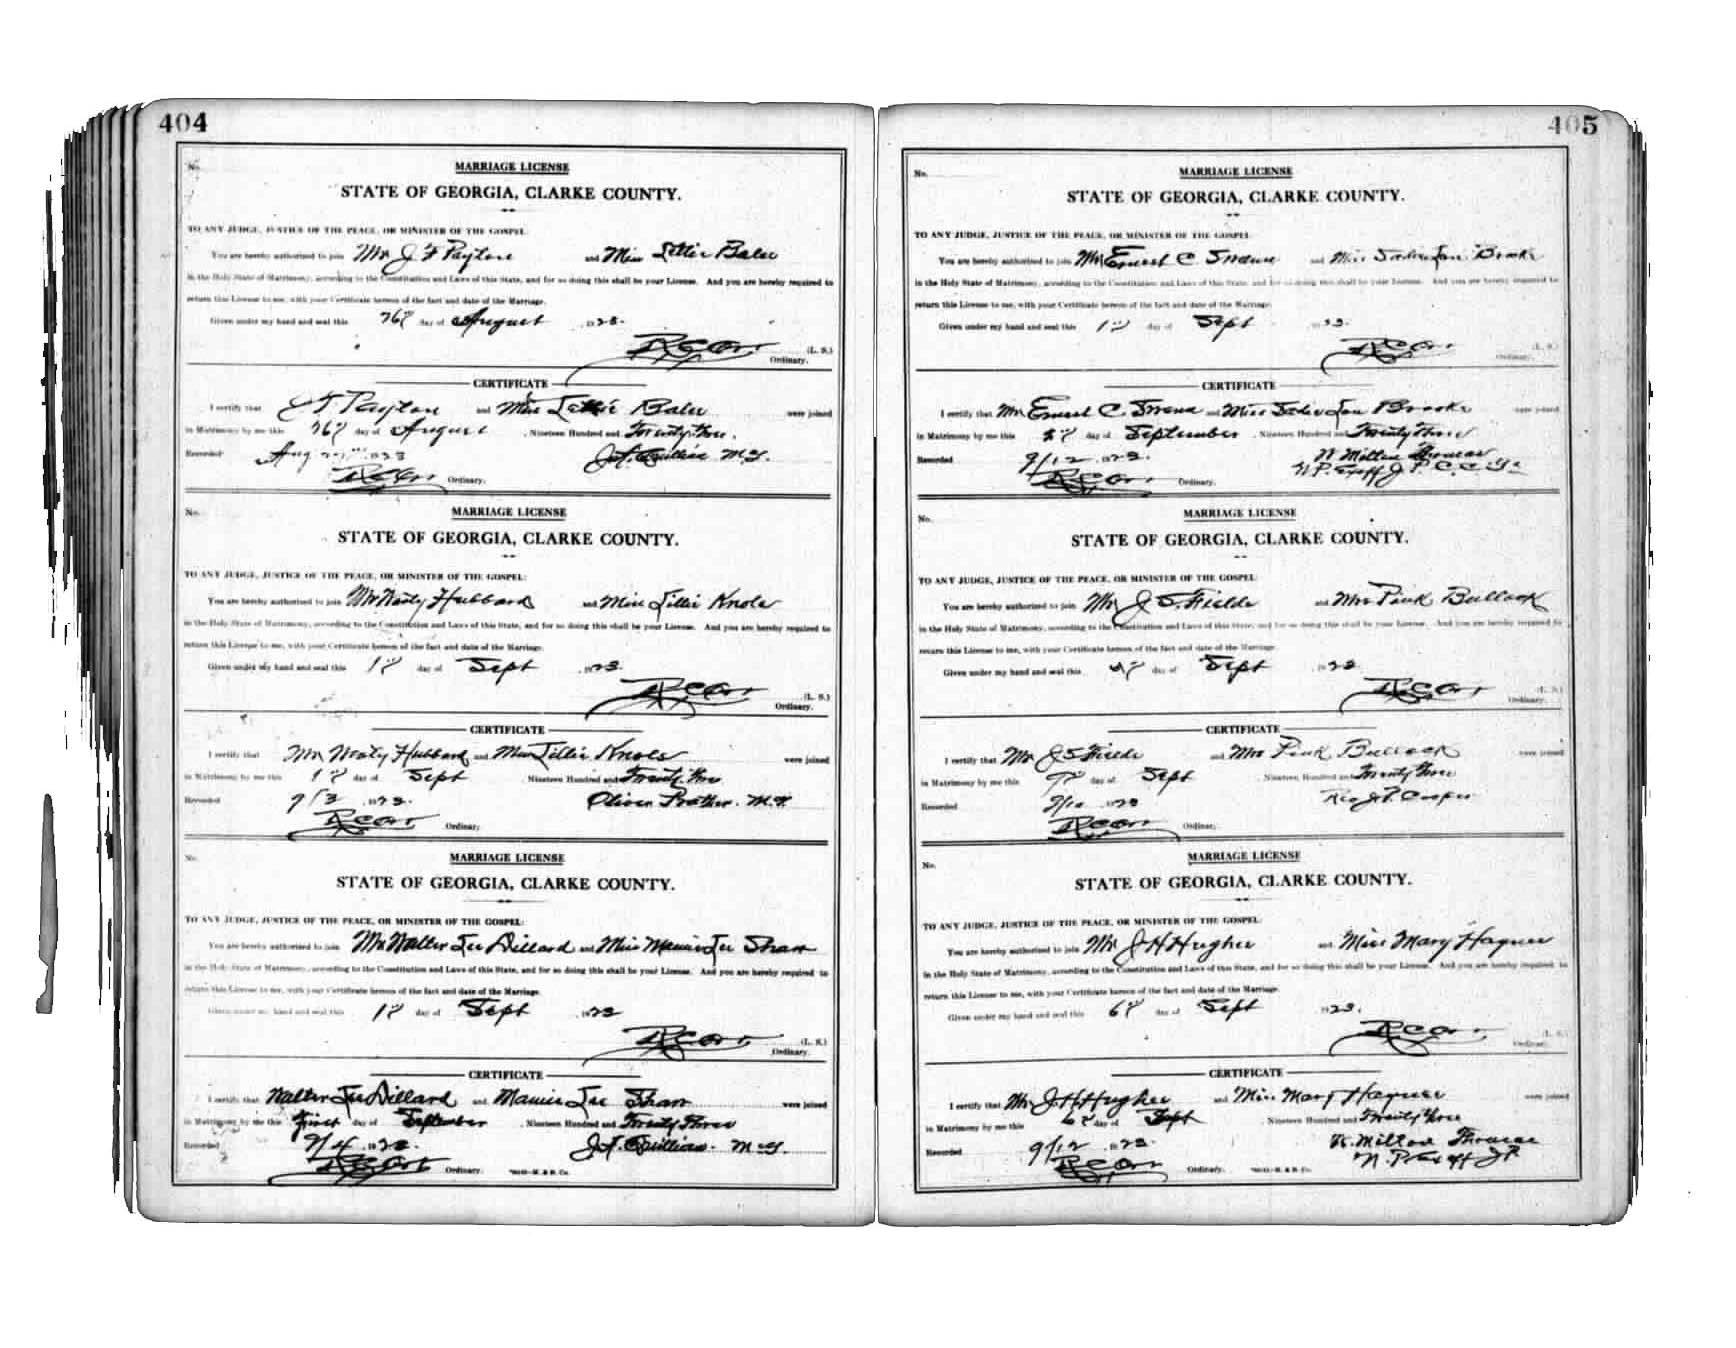 404
No.
MARRIAGE LICENSE
STATE OF GEORGIA, CLARKE COUNTY.
TO ANY JUDGE, JUSTICE OF THE PEACE, OR MINISTER OF THE GOSPEL:
You are hereby authorized to join Mr J F Payton and Miss Lettie
in the Holy State of Matrimony, according to the Constitution and Laws of this State, and for so doing this shall be your License. And you are hereby required to
return this License to me, with your Certificate hereon of the fact and date of the Marriage.
Given under my hand and seal this day of August 1923.
(L. S.)
Ordinary.
CERTIFICATE
I certify that J F Payton and Miss were joined
in Matrimony by me this day of August, Nineteen Hundred and Twenty Three.
Recorded Aug 1923 J. A. Quillian M.G.
Ordinary.
No.
MARRIAGE LICENSE
STATE OF GEORGIA, CLARKE COUNTY.
TO ANY JUDGE, JUSTICE OF THE PEACE, OR MINISTER OF THE GOSPEL:
You are hereby authorized to join Mr Hubbard and Miss Lillie Knole
in the Holy State of Matrimony, according to the Constitution and Laws of this State, and for so doing this shall be your License. And you are hereby required to
return this License to me, with your Certificate hereon of the fact and date of the Marriage.
Given under my hand and seal this 1st day of Sept 1923
(L. S.)
Ordinary.
CERTIFICATE
I certify that Mr Hubbard and Miss Lillie Knole were joined
in Matrimony by me this 1st day of Sept, Nineteen Hundred and Twenty Three
Recorded 9/3 1923. Oliver Prather. M.G.
Ordinary.
No.
MARRIAGE LICENSE
STATE OF GEORGIA, CLARKE COUNTY.
TO ANY JUDGE, JUSTICE OF THE PEACE, OR MINISTER OF THE GOSPEL:
You are hereby authorized to join Mr Walter Lee Dillard and Miss Mamie Lee Shaw
in the Holy State of Matrimony, according to the Constitution and Laws of this State, and for so doing this shall be your License. And you are hereby required to
return this License to me, with your Certificate hereon of the fact and date of the Marriage.
Given under my hand and seal this 1st day of Sept 1923
(L. S.)
Ordinary.
CERTIFICATE
I certify that Walter Lee Dillard and Mamie Lee Shaw were joined
in Matrimony by me this First day of September, Nineteen Hundred and Twenty Three
Recorded 9/4 1923. J. A. Quillian. M.G.
Ordinary.
405
No.
MARRIAGE LICENSE
STATE OF GEORGIA, CLARKE COUNTY.
TO ANY JUDGE, JUSTICE OF THE PEACE, OR MINISTER OF THE GOSPEL:
You are hereby authorized to join Mr Ernest C. and Miss Lou Brooks
in the Holy State of Matrimony, according to the Constitution and Laws of this State, and for so doing this shall be your License. And you are hereby required to
return this License to me, with your Certificate hereon of the fact and date of the Marriage.
Given under my hand and seal this 1st day of Sept 1923.
(L. S.)
Ordinary.
CERTIFICATE
I certify that Mr Ernest C. and Miss Lou Brooks were joined
in Matrimony by me this day of September, Nineteen Hundred and Twenty Three
Recorded 9/12 1923. W Milton Thomas
J. P. C. C. Ga
Ordinary.
No.
MARRIAGE LICENSE
STATE OF GEORGIA, CLARKE COUNTY.
TO ANY JUDGE, JUSTICE OF THE PEACE, OR MINISTER OF THE GOSPEL:
You are hereby authorized to join Mr J S. Fields and Mrs Pink Bullock
in the Holy State of Matrimony, according to the Constitution and Laws of this State, and for so doing this shall be your License. And you are hereby required to
return this License to me, with your Certificate hereon of the fact and date of the Marriage.
Given under my hand and seal this day of Sept 1923
(L. S.)
Ordinary.
CERTIFICATE
I certify that Mr J S Fields and Mrs Pink Bullock were joined
in Matrimony by me this day of Sept, Nineteen Hundred and Twenty Three
Recorded 9/10 1923 Rev J. P. Cooper
Ordinary.
No.
MARRIAGE LICENSE
STATE OF GEORGIA, CLARKE COUNTY.
TO ANY JUDGE, JUSTICE OF THE PEACE, OR MINISTER OF THE GOSPEL:
You are hereby authorized to join Mr J H Hughes and Miss Mary Hagner
in the Holy State of Matrimony, according to the Constitution and Laws of this State, and for so doing this shall be your License. And you are hereby required to
return this License to me, with your Certificate hereon of the fact and date of the Marriage.
Given under my hand and seal this 6th day of Sept 1923.
(L. S.)
Ordinary.
CERTIFICATE
I certify that Mr. J. H. Hughes and Miss Mary Hagner were joined
in Matrimony by me this 6th day of Sept, Nineteen Hundred and Twenty Three
Recorded 9/12 1923. W. Milton Thomas
J P.
Ordinary.